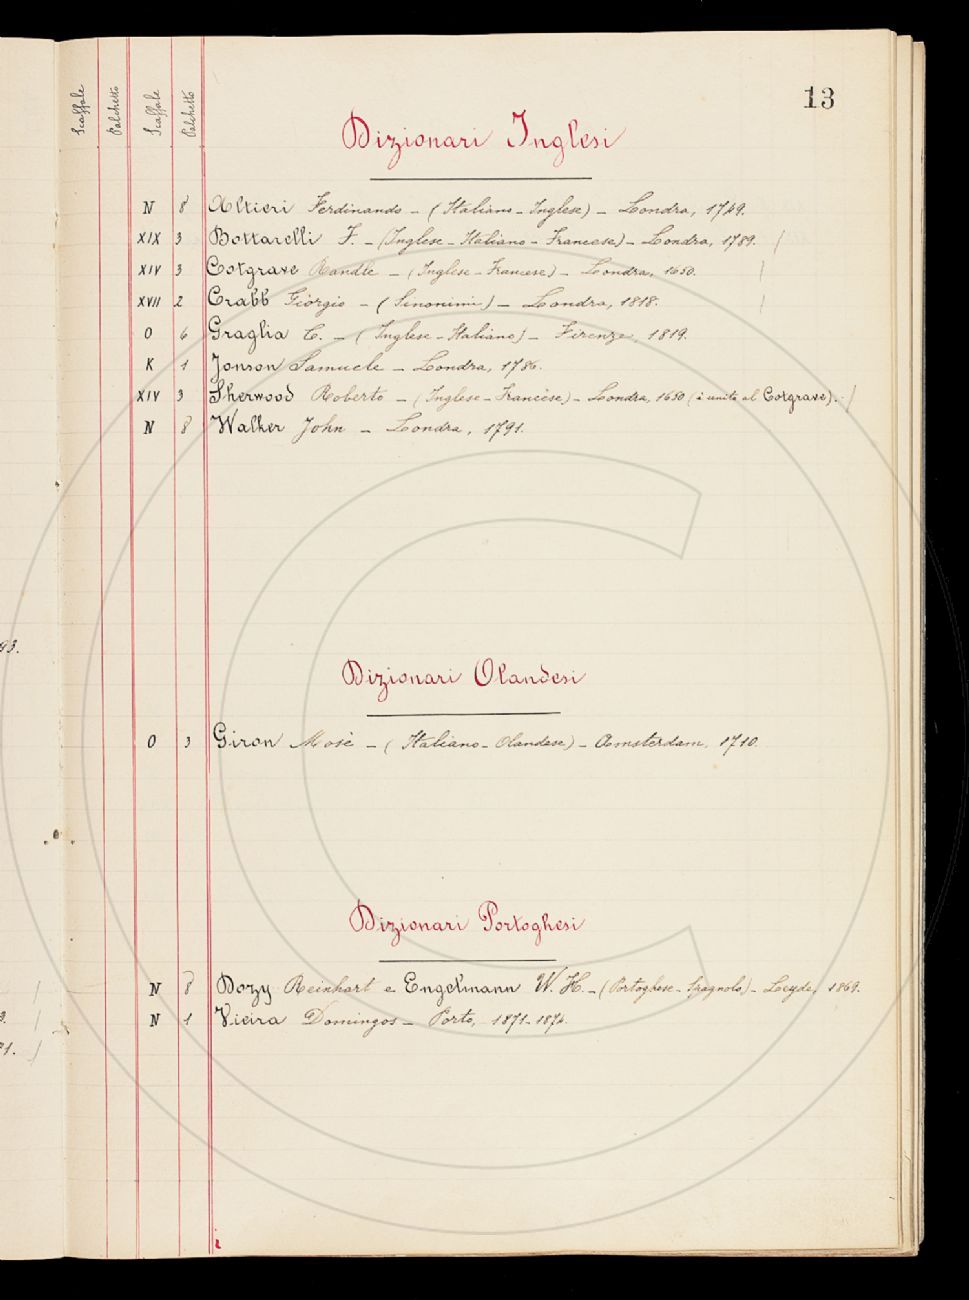 13
Scaffale Palchetto Scaffale Palchetto
Dizionari Inglesi
N 8 Altieri Ferdinando - (Italiano - Inglese) - Londra, 1749.
XIX 3 Bottarelli F. - (Inglese - Italiano - Francese) - Londra, 1789. /
XIV 3 Cotgrave Randle - (Inglese - Francese) - Londra, 1650. /
XVII 2 Crabb Giorgio - (Sinonimi) - Londra, 1818. /
O 6 Graglia C. - (Inglese - Italiano) - Firenze, 1819.
K 1 Jonson Samuele - Londra, 1786.
XIV 3 Sherwood Roberto - (Inglese - Francese) - Londra, 1650 (è unito al Cotgrave). /
N 8 Walker John - Londra, 1791.
93.
Dizionari Olandesi
O 3 Giron Mosè - (Italiano - Olandese) - Amsterdam, 1710.
Dizionari Portoghesi
N 8 Dozy Reinhart e Engelmann W. H. - (Portoghese - Spagnolo) - Leyde, 1869.
N 1 Vieira Domingos - Porto, 1871-1874.